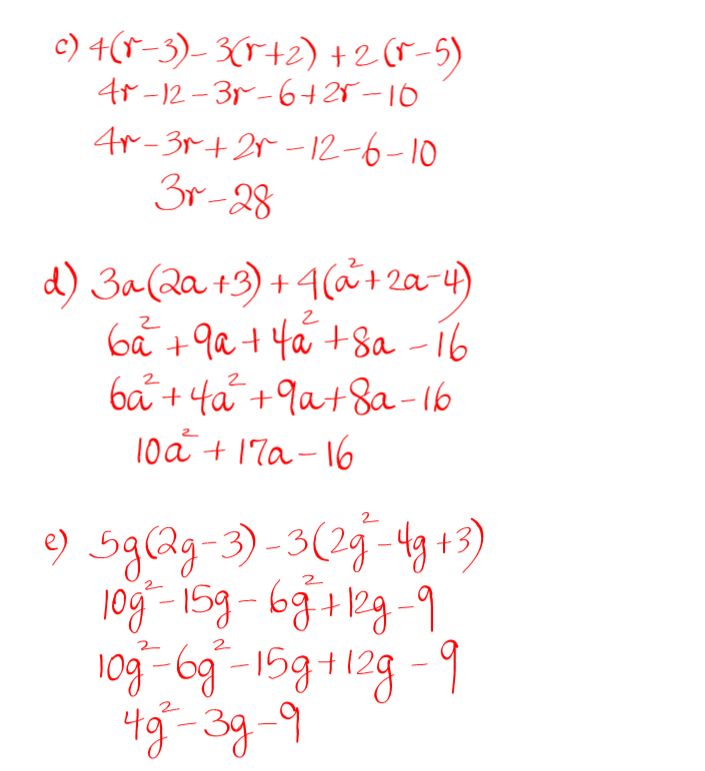 c) 4(r-3)-3(r+2)+2(r-5)
4r-12-3r-6+2r-10
4r-3r+2r-12-6-10
3r-28
d) 3a(2a+3)+4(a²+2a-4)
6a²+9a+4a²+8a-16
6a²+4a²+9a+8a-16
10a²+17a-16
e) 5g(2g-3)-3(2g²-4g+3)
10g²-15g-6g²+12g-9
10g²-6g²-15g+12g-9
4g²-3g-9